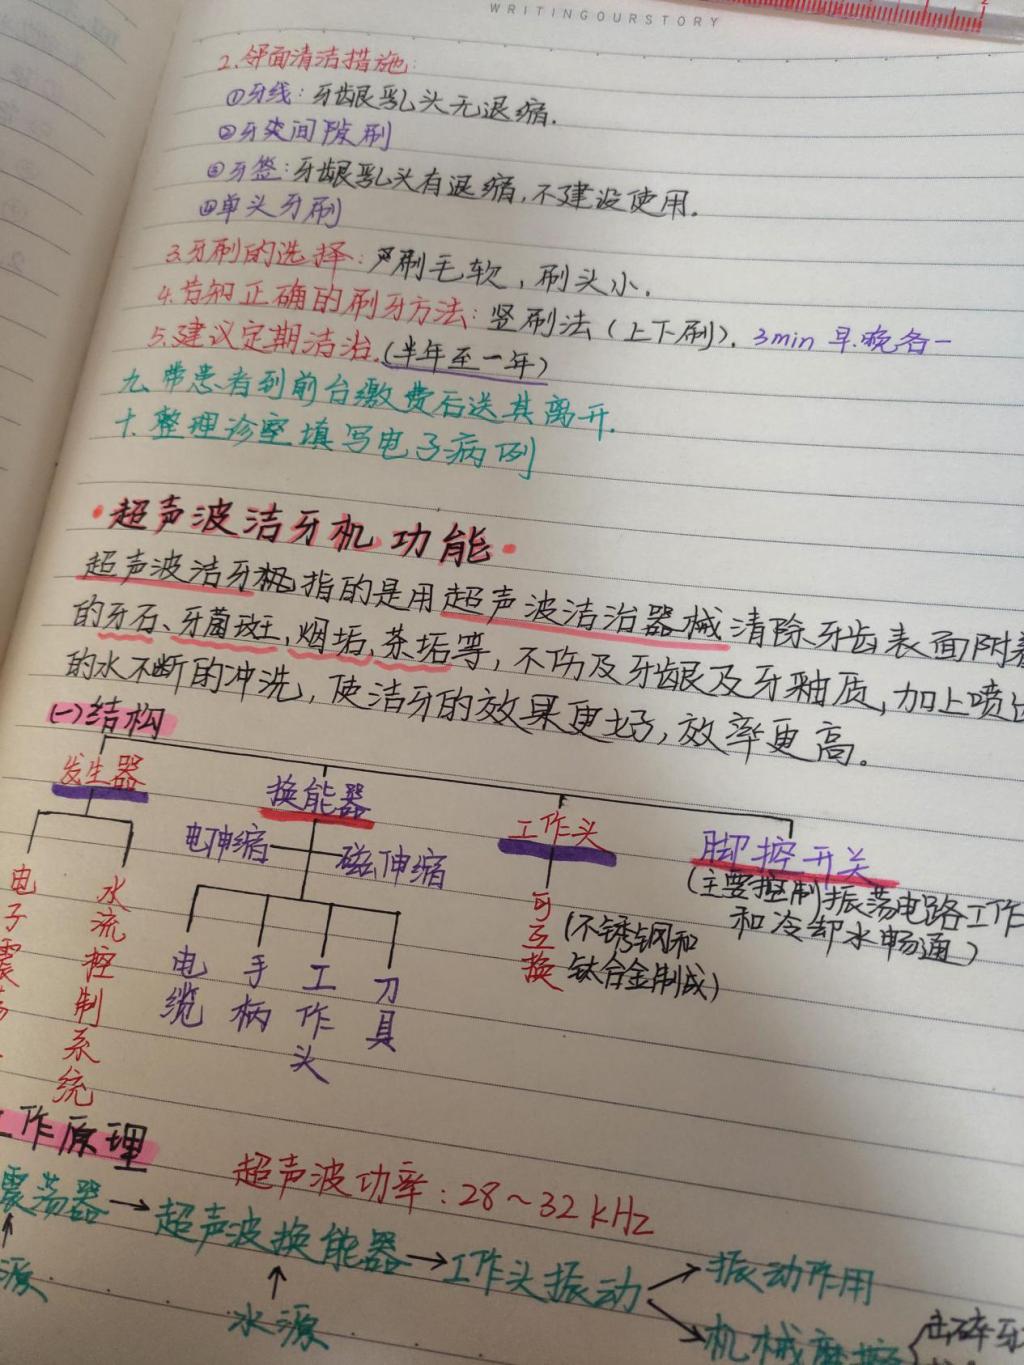 WRITINGOURSTORY
2.邻面清洁措施:
①牙线:牙龈乳头无退缩.
②牙尖间隙刷
③牙签:牙龈乳头有退缩,不建设使用.
④单头牙刷
3.牙刷的选择:刷毛软,刷头小.
4.告知正确的刷牙方法:竖刷法(上下刷).3min 早.晚各一
5.建议定期洁治.(半年至一年)
九.带患者到前台缴费后送其离开.
十.整理诊室填写电子病例
·超声波洁牙机功能·
超声波洁牙机指的是用超声波洁治器械清除牙齿表面附着
的牙石、牙菌斑,烟垢,茶垢等,不伤及牙龈及牙釉质,加上喷出
的水不断的冲洗,使洁牙的效果更好,效率更高。
(一)结构
发生器 换能器 工作头 脚控开关
电伸缩 磁伸缩 (主要控制)振荡电路工作
和冷却水畅通)
电子震荡 水流控制系统 电缆 手柄 工作头 刀具 可互换 (不锈钢和
钛合金制成)
工作原理
超声波功率:28~32kHz
震荡器→超声波换能器→工作头振动 振动作用
源 水源 机械摩擦 击碎牙